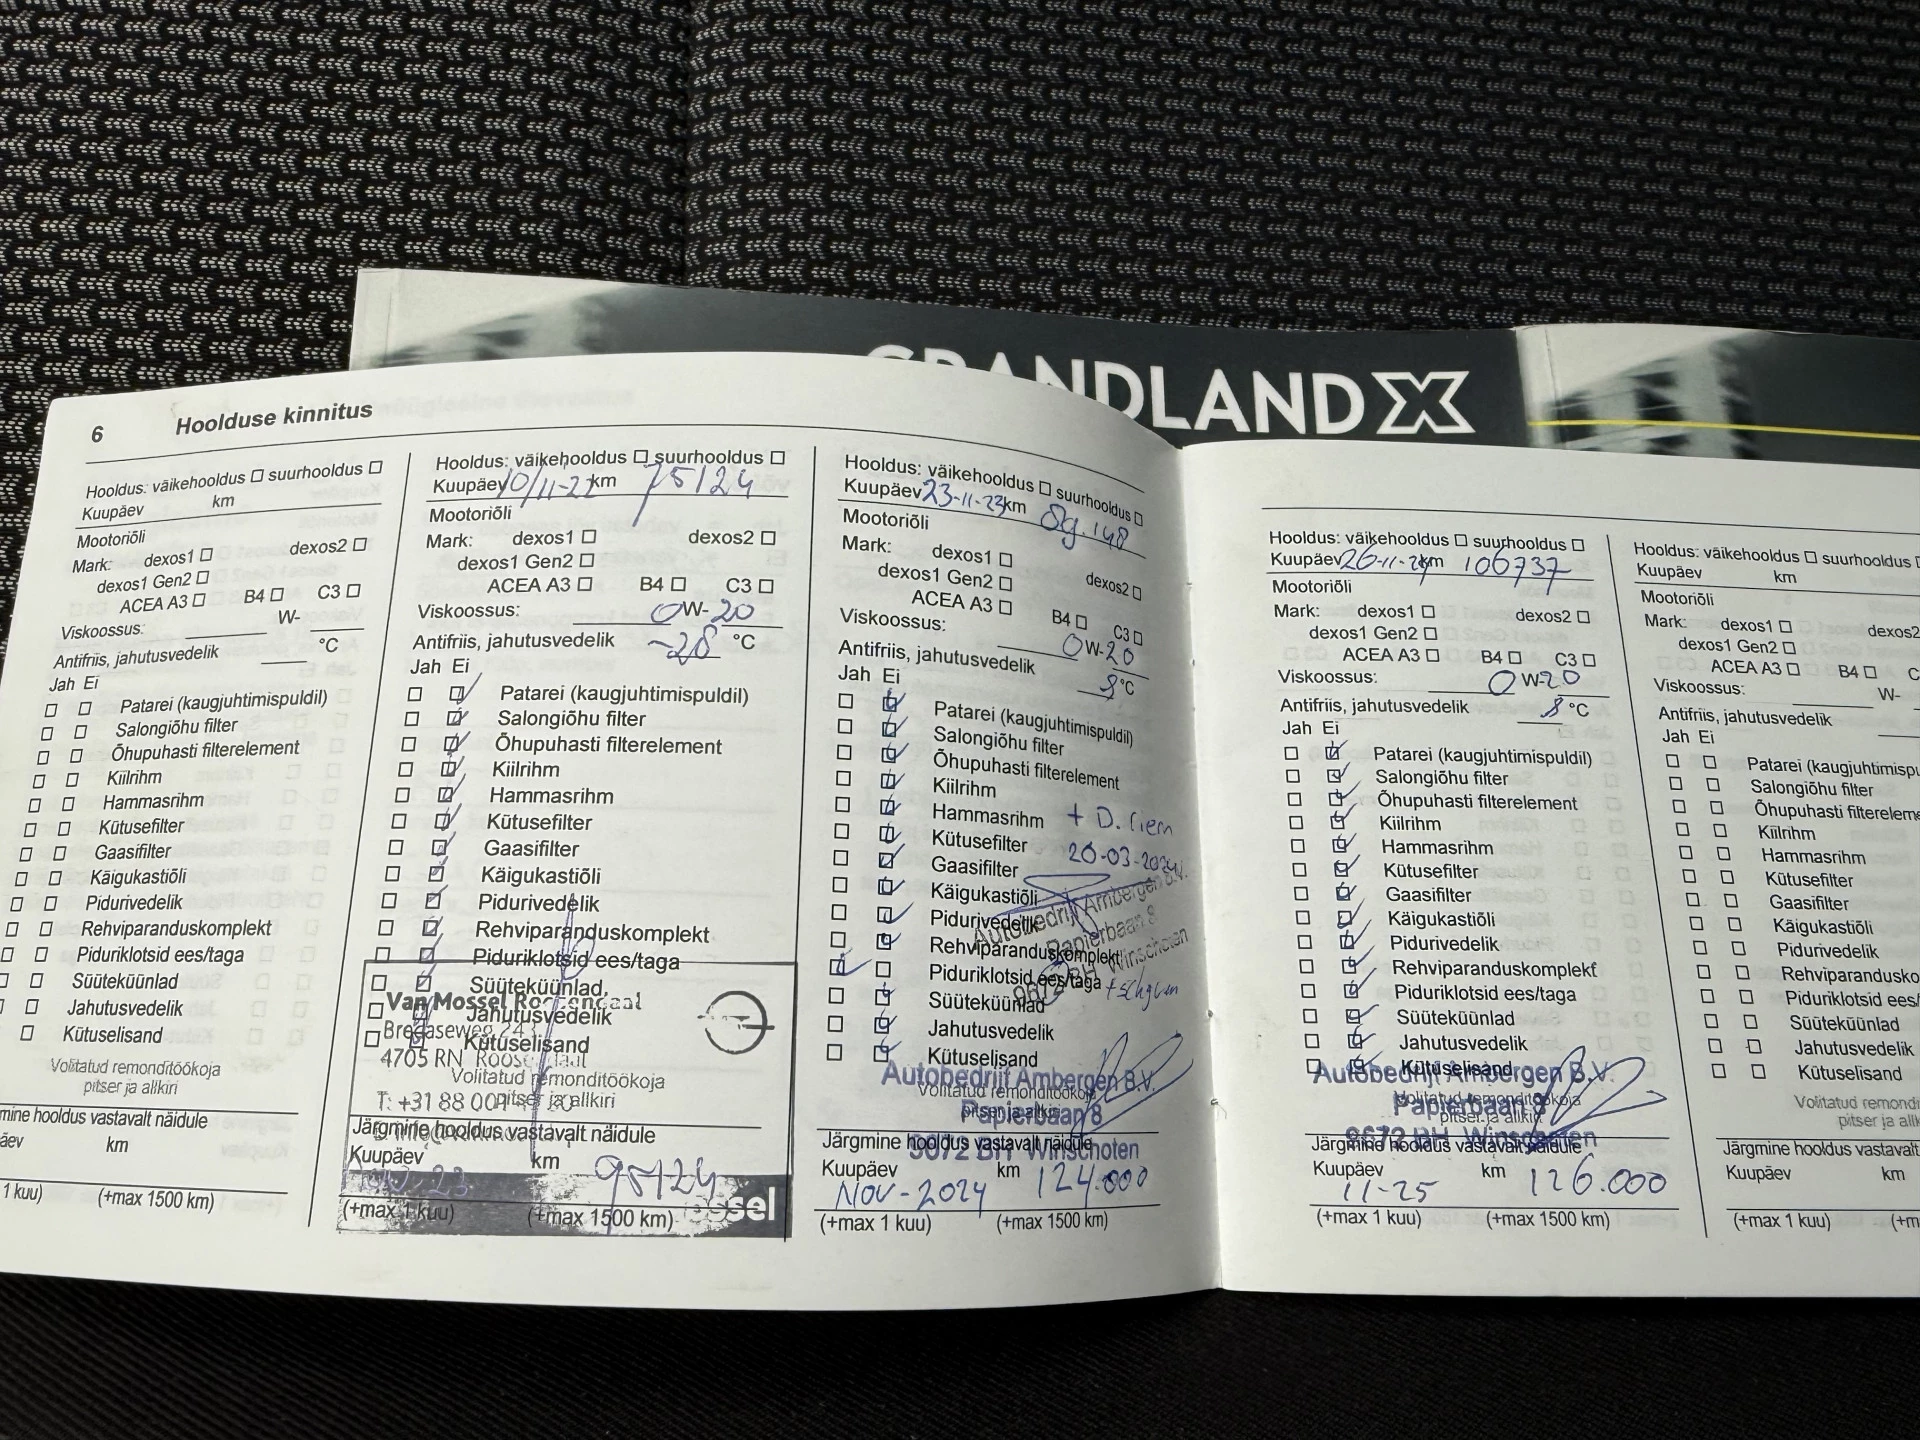 GRANDLAND X
6 Hoolduse kinnitus
Hooldus: väikehooldus ☐ suurhooldus ☐
Kuupäev km
Mootoriõli
Mark: dexos1 ☐ dexos2 ☐
dexos1 Gen2 ☐
ACEA A3 ☐ B4 ☐ C3 ☐
Viskoossus: W-
Antifriis, jahutusvedelik °C
Jah Ei
Patarei (kaugjuhtimispuldil)
Salongiõhu filter
Õhupuhasti filterelement
Kiilrihm
Hammasrihm
Kütusefilter
Gaasifilter
Käigukastiõli
Pidurivedelik
Rehviparanduskomplekt
Piduriklotsid ees/taga
Süüteküünlad
Jahutusvedelik
Kütuselisand
Volitatud remonditöökoja
pitser ja allkiri
mine hooldus vastavalt näidule
äev km
1 kuu) (+max 1500 km)
Hooldus: väikehooldus ☐ suurhooldus ☐
Kuupäev 10/11-22 km 75124
Mootoriõli
Mark: dexos1 ☐ dexos2 ☐
dexos1 Gen2 ☐
ACEA A3 ☐ B4 ☐ C3 ☐
Viskoossus: 0W-20
Antifriis, jahutusvedelik -28 °C
Jah Ei
Patarei (kaugjuhtimispuldil)
Salongiõhu filter
Õhupuhasti filterelement
Kiilrihm
Hammasrihm
Kütusefilter
Gaasifilter
Käigukastiõli
Pidurivedelik
Rehviparanduskomplekt
Piduriklotsid ees/taga
Süüteküünlad
Van Mossel Roosendaal
Jahutusvedelik
Bredaseweg 243
Kütuselisand
4705 RN Roosendaal
Volitatud remonditöökoja
T: +31 88 001
pitser ja allkiri
Järgmine hooldus vastavalt näidule
Kuupäev 23 km 95124
(+max 1 kuu) (+max 1500 km)
ssel
Hooldus: väikehooldus ☐ suurhooldus ☐
Kuupäev 23-11-23 km 89.148
Mootoriõli
Mark: dexos1 ☐ dexos2 ☐
dexos1 Gen2 ☐
ACEA A3 ☐ B4 ☐ C3 ☐
Viskoossus: 0W-20
Antifriis, jahutusvedelik °C
Jah Ei
Patarei (kaugjuhtimispuldil)
Salongiõhu filter
Õhupuhasti filterelement
Kiilrihm
Hammasrihm + D. riem
Kütusefilter 20-03-2024
Gaasifilter
Käigukastiõli
Autobedrijf Ambergen B.V.
Pidurivedelik
Papierbaan 8
Rehviparanduskomplekt
9672 BH Winschoten
Piduriklotsid ees/taga
Süüteküünlad
Jahutusvedelik
Kütuselisand
Autobedrijf Ambergen B.V.
Volitatud remonditöökoja
Papierbaan 8
pitser ja allkiri
9672 BH Winschoten
Järgmine hooldus vastavalt näidule
Kuupäev NOV-2024 km 124.000
(+max 1 kuu) (+max 1500 km)
Hooldus: väikehooldus ☐ suurhooldus ☐
Kuupäev 26-11-24 km 106737
Mootoriõli
Mark: dexos1 ☐ dexos2 ☐
dexos1 Gen2 ☐
ACEA A3 ☐ B4 ☐ C3 ☐
Viskoossus: 0W-20
Antifriis, jahutusvedelik °C
Jah Ei
Patarei (kaugjuhtimispuldil)
Salongiõhu filter
Õhupuhasti filterelement
Kiilrihm
Hammasrihm
Kütusefilter
Gaasifilter
Käigukastiõli
Pidurivedelik
Rehviparanduskomplekt
Piduriklotsid ees/taga
Süüteküünlad
Jahutusvedelik
Kütuselisand
Autobedrijf Ambergen B.V.
Volitatud remonditöökoja
Papierbaan 8
pitser ja allkiri
9672 BH Winschoten
Järgmine hooldus vastavalt näidule
Kuupäev 11-25 km 126.000
(+max 1 kuu) (+max 1500 km)
Hooldus: väikehooldus ☐ suurhooldus
Kuupäev km
Mootoriõli
Mark: dexos1 ☐ dexos2
dexos1 Gen2 ☐
ACEA A3 ☐ B4 ☐ C
Viskoossus: W-
Antifriis, jahutusvedelik
Jah Ei
Patarei (kaugjuhtimispu
Salongiõhu filter
Õhupuhasti filtereleme
Kiilrihm
Hammasrihm
Kütusefilter
Gaasifilter
Käigukastiõli
Pidurivedelik
Rehviparandusko
Piduriklotsid ees/
Süüteküünlad
Jahutusvedelik
Kütuselisand
Volitatud remondi
pitser ja allk
Järgmine hooldus vastavalt
Kuupäev km
(+max 1 kuu) (+m